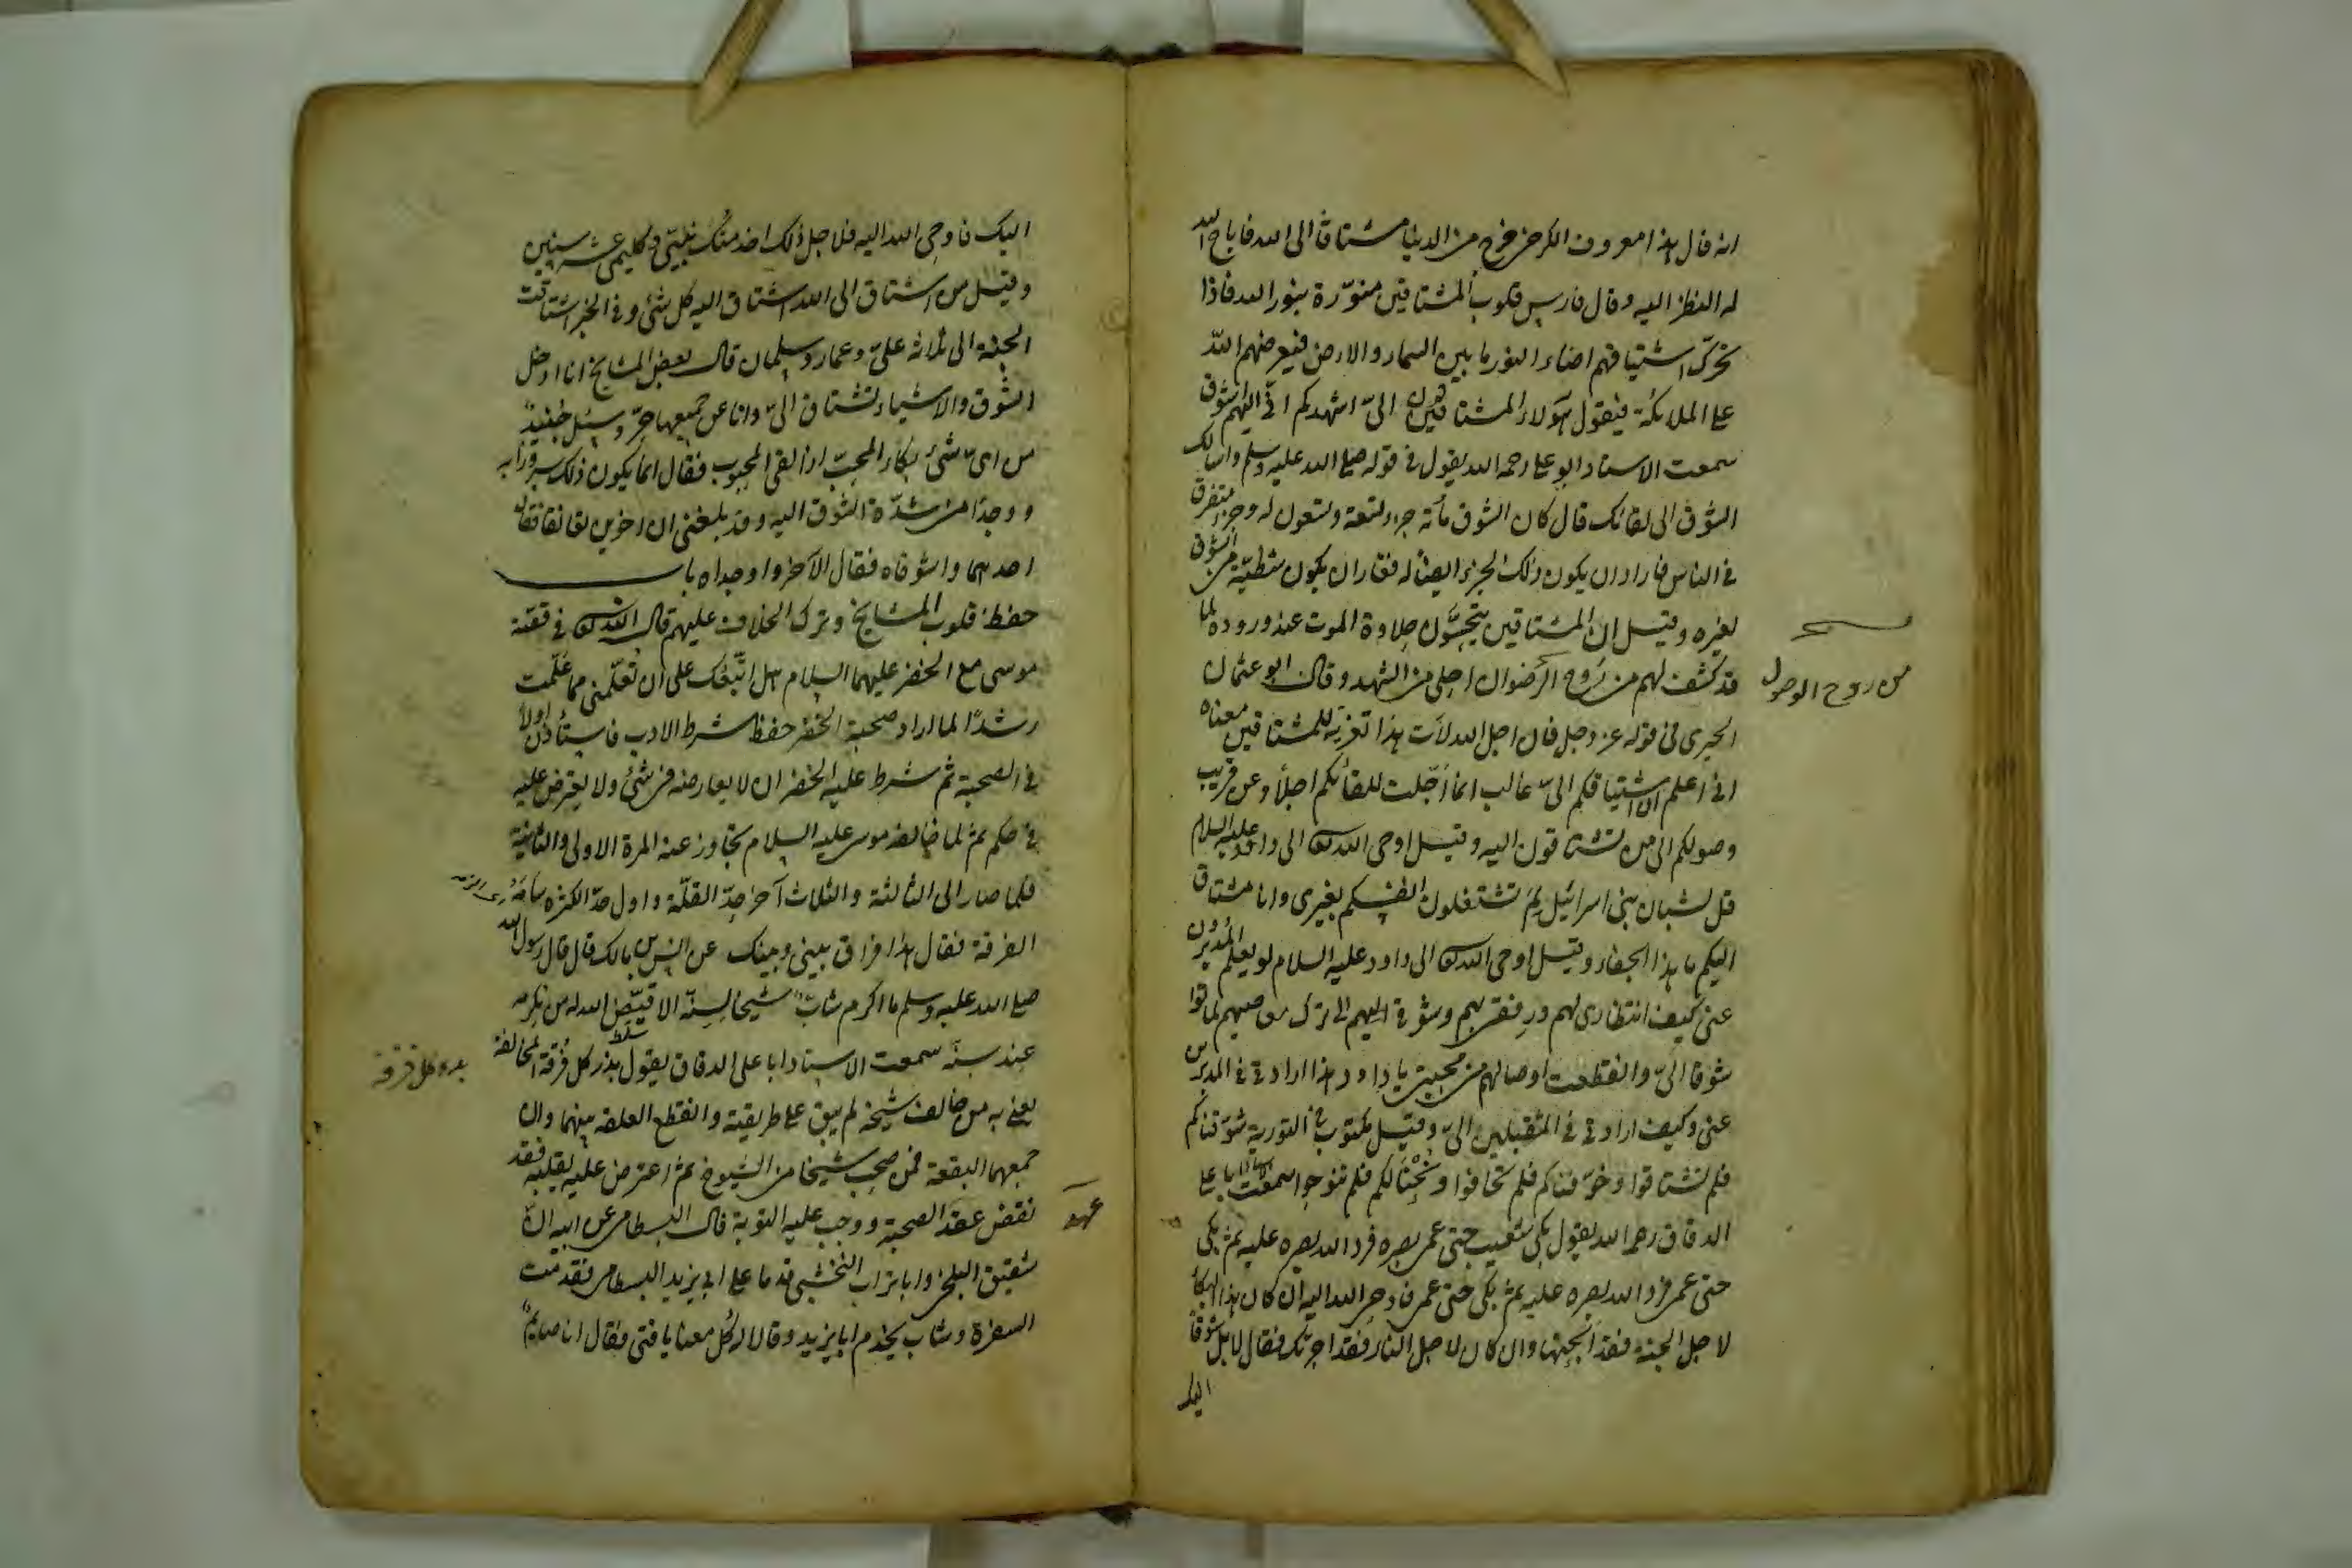 انه قال هذا معروف الكرخي خرج من الدنيا مشتاقا الى الله فاباح الله
له النظر اليه وقال فارس قلوب المشتاقين منوّرة بنور الله فاذا
تحرّك اشتياقهم اضاء النور ما بين السماء والارض فيعرضهم الله
على الملائكة فيقول هؤلاء المشتاقون الىّ اشهدكم انى اليهم اشوق
سمعت الاستاد ابو على رحمه الله يقول فى قوله صلى الله عليه وسلم واسالك
الشوق الى لقائك قال كان الشوق مأة جزء تسعة وتسعون له وجزء متفرق
فى الناس فاراد ان يكون ذلك الجزء ايضا له فغار ان يكون شظيّة من الشوق
لغيره وقيل ان المشتاقين يتحسّون حلاوة الموت عند وروده لما
قد كشف لهم من رَوح الرضوان احلى من الشهد وقال ابو عثمان
من روح الوصول
الحيرى فى قوله عز وجل فان اجل الله لآت هذا تعزية للمشتاقين معناه
انى اعلم ان اشتياقكم الىّ غالب انا اجّلت للقائكم اجلًا وعن قريب
وصولكم الى من تشتاقون اليه وقيل اوحى الله الى داود عليه السلام
قل لشبان بنى اسرائيل لِمَ تشتغلون انفسكم بغيرى وانا مشتاق
اليكم ما هذا الجفاء وقيل اوحى الله الى داود عليه السلام لو يعلم المُدبرون
عنى كيف انتظارى لهم ورفقى بهم وشوقى اليهم الى ترك معاصيهم لماتوا
شوقا الىّ وانقطعت اوصالهم من محبتى يا داود هذا ارادتى فى المدبرين
عنى وكيف ارادتى فى المقبلين الىّ وقيل مكتوب فى التورية شوّقناكم
فلم تشتاقوا وخوّفناكم فلم تخافوا ونُحْنَا لكم فلم تنوحوا سمعت الاستاذ ابا على
الدقاق رحمه الله يقول بكى شعيب حتى عمى بصره فرد الله بصره عليه ثم بكى
حتى عمى فرد الله بصره عليه ثم بكى حتى عمى فاوحى الله اليه ان كان هذا البكأ
لاجل الجنة فقد ابحتها وان كان لاجل النار فقد اجرتك فقال لا بل شوقًا
اليك
اليك فاوحى الله اليه فلاجل ذلك اخدمتُك نبيّى وكليمى عشر سنين
وقيل من اشتاق الى الله اشتاق اليه كل شئ وفى الخبر اشتاقت
الجنة الى ثلاثة علىّ وعمار وسلمان قال بعض المشايخ انا ادخل
الشوق والاشياء تشتاق الىّ وانا عن جميعها حرّ وسئل جُنيدٌ
من اىّ شئ بكاء المحبّ اذا لقى المحبوب فقال انما يكون ذلك سرورًا به
ووجدًا من شدّة الشوق اليه وقد بلغنى ان اخوين لقا تعانقا فقال
احدهما واشوقاه فقال الآخر واوجداه باب
حفظ قلوب المشايخ وترك الخلاف عليهم قال الله فى قصّة
موسى مع الخضر عليهما السلام هل اتّبعُك على ان تُعلّمنى مما عُلّمت
رشدًا لما اراد صحبة الخضر حفظ شرط الادب فاستأذن اولًا
فى الصحبة ثم شرط عليه الخضر ان لا يعارضه فى شئ ولا يعترض عليه
فى حكم ثم لما خالفه موسى عليه السلام تجاوز عنه المرة الاولى والثانية
فلما صار الى الثالثة والثلاث آخر حدّ القلّة واول حدّ الكثرة سامَهُ
الفرقة فقال هذا فراق بينى وبينك عن انس بن مالك قال قال رسول الله
صلى الله عليه وسلم ما اكرم شابٌ شيخا لسِنّه الا قيّض الله له من يكرمه
عند سنّه سمعت الاستاد ابا على الدقاق يقول بذر كل فُرقة المخالفة
بدو كل فرقة
يعنى به من خالف شيخه لم يبق على طريقته وانقطع العلقة بينهما وان
جمعهما البقعة فمن صحب شيخا من الشيوخ ثم اعترض عليه بقلبه فقد
نقض عقد الصحبة ووجب عليه التوبة قال البسطامى عن ابيه انّ
عهد
شقيق البلخى وابا تراب النخشبى قدما على ابى يزيد البسطامى فقدمت
السفرة وشاب يخدم ابا يزيد وقالا له كُل معنا يا فتى فقال انا صايمٌ